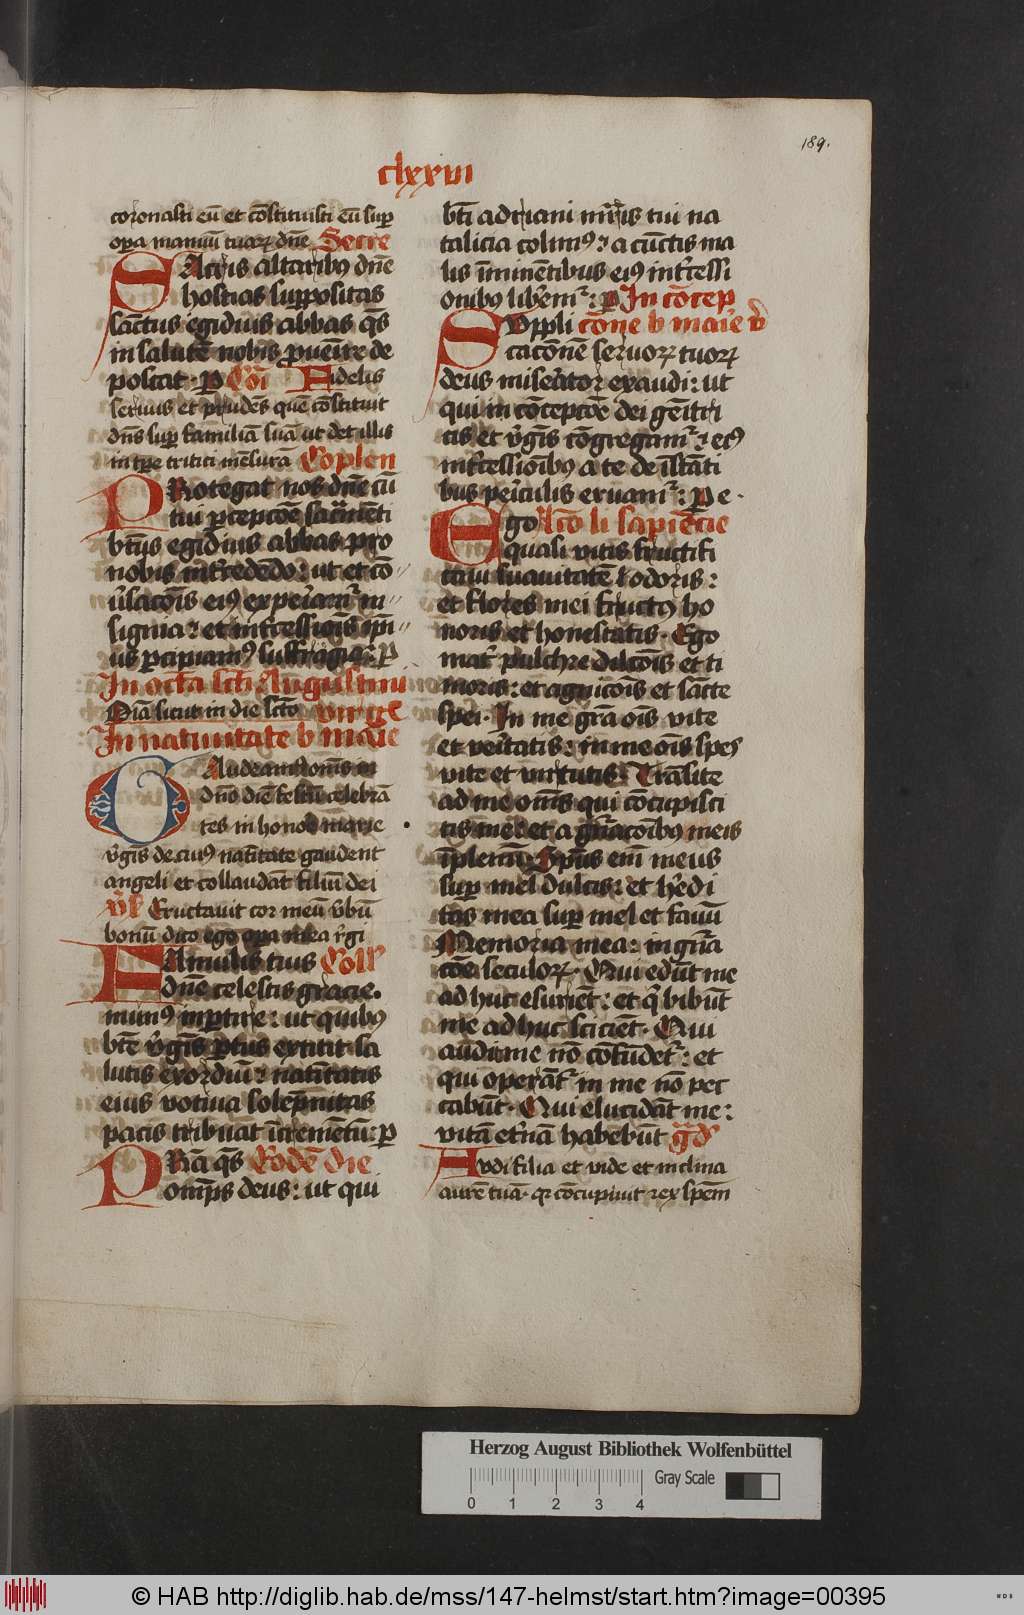 189.
clxxvii
coronasti eū et cōstituisti eū suꝑ
oꝑa manuū tuaꝝ dn̄e Secre
SAcris altaribꝰ dn̄e
hostias suppositas
sāctus egidius abbas q̄s
in salutē nobis ꝓuenire de
poscat · ꝑ Cōi Fidelis
seruus et prudēs quē cōstituit
dn̄s suꝑ familiā suā ut det illis
in tꝑe tritici mēsurā Coplen
PRotegat nos dn̄e cū
tui ꝑcepcōe sacramēti
bt̄us egidius abbas pro
nobis int̄cedēdo : ut et cō
u̓sacōis eiꝰ expeͥamr̄ in
signia : et int̄cessiōis ipi
us ꝑcipiamꝰ suffragia : ꝑ
In octa sc̄i Augustini
Oīa sicut in die sc̄to uirgͤ
In natiuitate b maͥe
GAudeamꝰ om̄s in
dn̄o diē festū celebrā
tes in honoͤ marie
v̓gīs de cuiꝰ natītate gaudent
angeli et collaudāt filiū dei
v̓s Eructauit cor meū v̓bū
bonū dico ego oꝑa mea r̓gi
FAmulis tuis Coll
dn̄e celestis gracie
munꝰ inꝑtire : ut quibꝰ
bt̄e v̓gīs ꝑtus extitit sa
lutis exordiū : natītatis
eius votiua solēpnitas
pacis tribuat īcremētū : ꝑ
PRīa q̄s Eodē die
omp̄s deus : ut qui
bt̄i adriani mr̄is tui na
talicia colimꝰ : a cūctis ma
lis īminētibus eiꝰ int̄cessi
onibꝰ libemr̄ : ꝑ In cōcep
SUppli cōne b maͥe v̓
cacōnē seruoꝝ tuoꝝ
deus miserator exaudi : ut
qui in cōcepcōe dei genitri
cis et v̓gīs cōgregamr̄ : eiꝰ
int̄cessiōibꝰ a te de īstāti
bus peͥculis eruamr̄ : ꝑ e ·
Ego Lc̄o li sapiēcie
quasi vitis fructifi
caui suauitatē odoris :
et flores mei fructꝰ ho
noris et honestatis · Ego
mat̄ pulchre dilcōis et ti
moris : et agnicōis et sācte
spei · In me gr̄a ōis vite
et veͥtatis : in me ōis spes
vite et virtutis · Trāsite
ad me om̄s qui cōcupisci
tis me : et a gn̄acōibꝰ meis
īplemī · Spūs em̄ meus
suꝑ mel dulcis : et hͤedi
tas mea suꝑ mel et fauū
Memoria mea : in gn̄a
cōe seculoꝝ · Qui edūt me
ad huc esuriēt : et q̄ bibūt
me ad huc sciciēt · Qui
audit me nō cōfūdetr̄ : et
qui operātr̄ in me nō pec
cabūt · Qui elucidāt me :
vitā et̓nā habebūt gr̄d
Audi filia et vide et inclina
aurē tuā · qr̄ cōcupiuit rex spēm
Herzog August Bibliothek Wolfenbüttel
Gray Scale
0 1 2 3 4
© HAB http://diglib.hab.de/mss/147-helmst/start.htm?image=00395